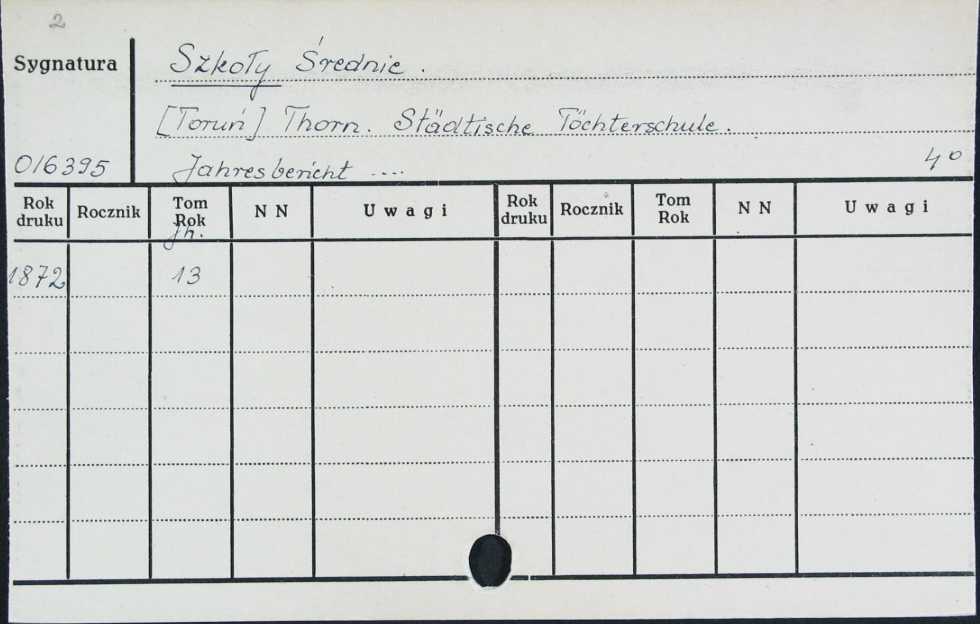 2
Sygnatura
Szkoły Średnie.
[Toruń] Thorn. Städtische Töchterschule.
016395
Jahresbericht ....
4°
Rok druku Rocznik Tom Rok N N Uwagi Rok druku Rocznik Tom Rok N N Uwagi
Jh.
1872 13